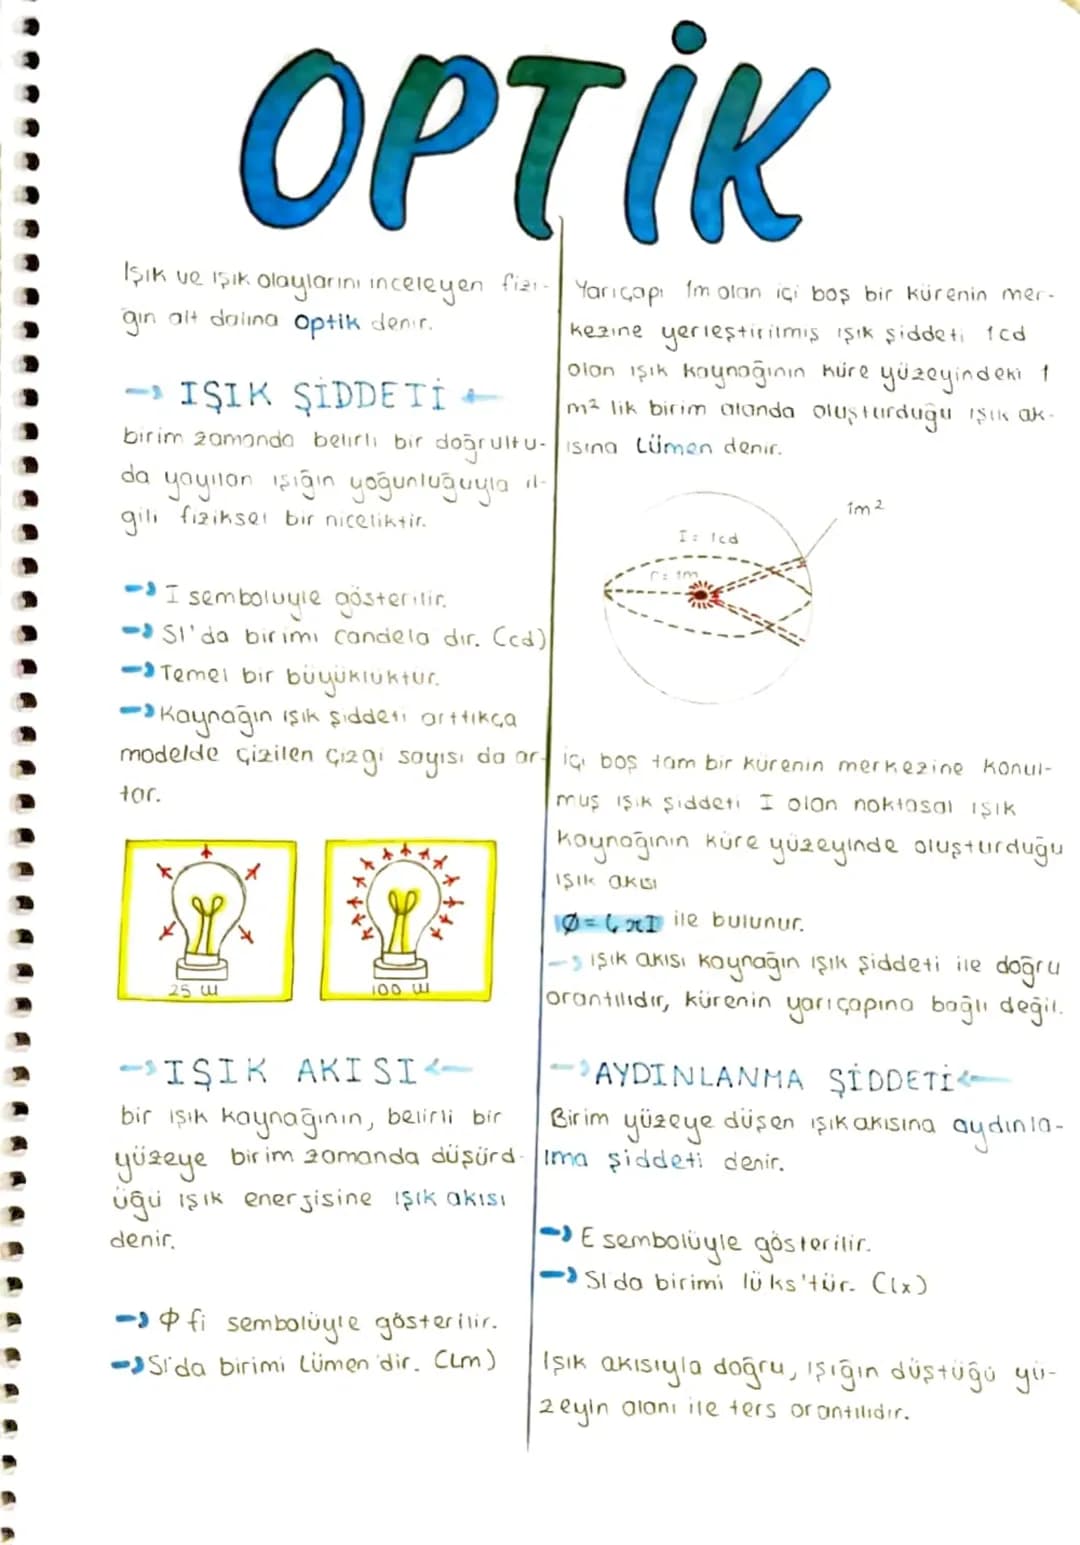 OPTİK
Işık ve ışık olaylarını inceleyen fizi-
ğin alt dalına optik denir.
→ IŞIK ŞİDDETİ ←
birim zamanda belirli bir doğrultu-
da yayılan ışığın yoğunluğuyla il-
gili fiziksel bir niceliktir.
→ I sembolüyle gösterilir.
→ SI'da birimi candela dır. (cd)
→ Temel bir büyüklüktür.
→ Kaynağın ışık şiddeti arttıkça
modelde çizilen çizgi sayısı da ar-
tar.
25 W
100 W
→ IŞIK AKISI ←
bir ışık kaynağının, belirli bir
yüzeye birim zamanda düşürd-
üğü ışık enerjisine ışık akısı
denir.
→ Φ fi sembolüyle gösterilir.
→ SI'da birimi Lümen'dir. (Lm)
Yarıçapı 1m olan içi boş bir kürenin mer-
kezine yerleştirilmiş ışık şiddeti 1cd
olan ışık kaynağının küre yüzeyindeki 1
m² lik birim alanda oluşturduğu ışık ak-
ısına Lümen denir.
1m²
I = 1cd
r = 1m
içi boş tam bir kürenin merkezine konul-
muş ışık şiddeti I olan noktasal ışık
kaynağının küre yüzeyinde oluşturduğu
ışık akısı
Ø = 4πI ile bulunur.
→ ışık akısı kaynağın ışık şiddeti ile doğru
orantılıdır, kürenin yarıçapına bağlı değil.
→ AYDINLANMA ŞİDDETİ ←
Birim yüzeye düşen ışık akısına aydınla-
nma şiddeti denir.
→ E sembolüyle gösterilir.
→ SI da birimi lüks'tür. (lx)
Işık akısıyla doğru, ışığın düştüğü yü-
zeyin alanı ile ters orantılıdır.